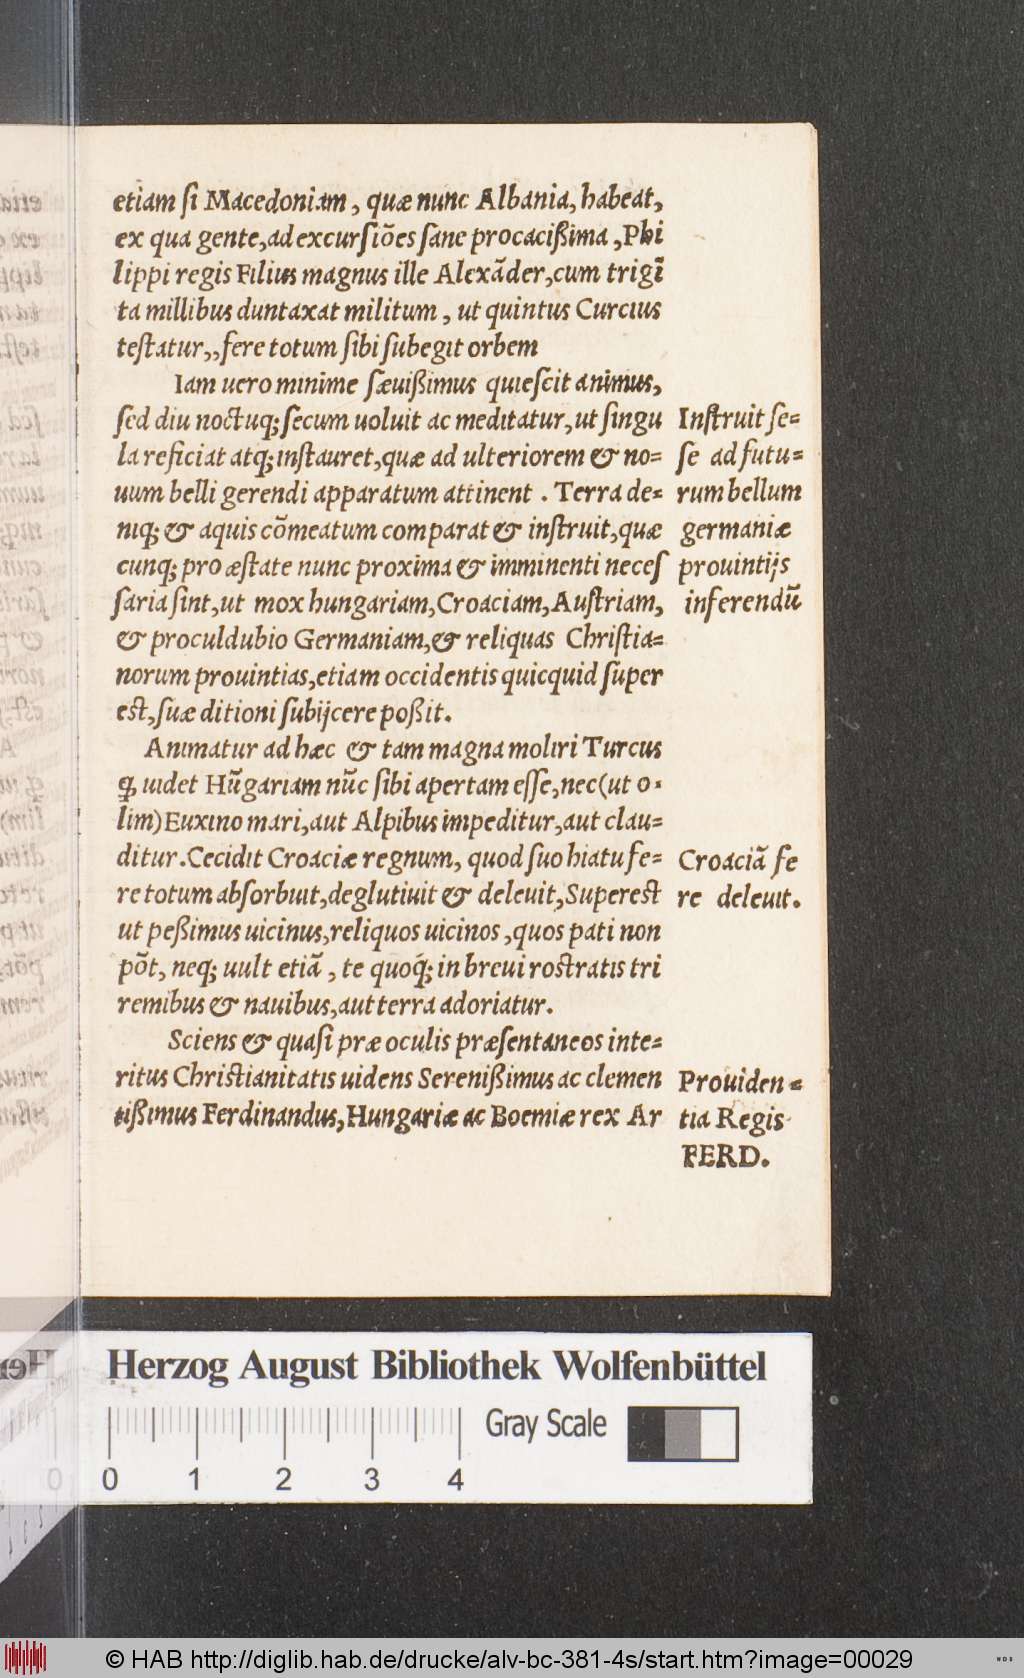 etiam ſi Macedoniam, quæ nunc Albania, habeat,
ex qua gente, ad excurſiões ſane procacißima, Phi
lippi regis Filius magnus ille Alexãder, cum trigĩ
ta millibus duntaxat militum, ut quintus Curcius
teſtatur,, fere totum ſibi ſubegit orbem
Iam uero minime ſæuißimus quieſcit animus,
ſed diu noctuq; ſecum uoluit ac meditatur, ut ſingu
la reficiat atq; inſtauret, quæ ad ulteriorem & no=
uum belli gerendi apparatum attinent. Terra de=
niq; & aquis cõmeatum comparat & inſtruit, quæ
cunq; pro æſtate nunc proxima & imminenti neceſ
ſaria ſint, ut mox hungariam, Croaciam, Auſtriam,
& proculdubio Germaniam, & reliquas Chriſtia=
norum prouintias, etiam occidentis quicquid ſuper
eſt, ſuæ ditioni ſubijcere poßit.
Inſtruit ſe=
ſe ad futu=
rum bellum
germaniæ
prouintijs
inferendũ
Animatur ad hæc & tam magna moliri Turcus
ꝙ uidet Hũgariam nũc ſibi apertam eſſe, nec (ut o=
lim) Euxino mari, aut Alpibus impeditur, aut clau=
ditur. Cecidit Croaciæ regnum, quod ſuo hiatu fe=
re totum abſorbuit, deglutiuit & deleuit, Supereſt
ut peßimus uicinus, reliquos uicinos, quos pati non
põt, neq; uult etiã, te quoq́; in breui roſtratis tri
remibus & nauibus, aut terra adoriatur.
Croaciã fe
re deleuit.
Sciens & quaſi præ oculis præſentaneos inte=
ritus Chriſtianitatis uidens Serenißimus ac clemen
tißimus Ferdinandus, Hungariæ ac Boemiæ rex Ar
Prouiden=
tia Regis
FERD.
Herzog August Bibliothek Wolfenbüttel
Gray Scale
0 1 2 3 4
© HAB http://diglib.hab.de/drucke/alv-bc-381-4s/start.htm?image=00029